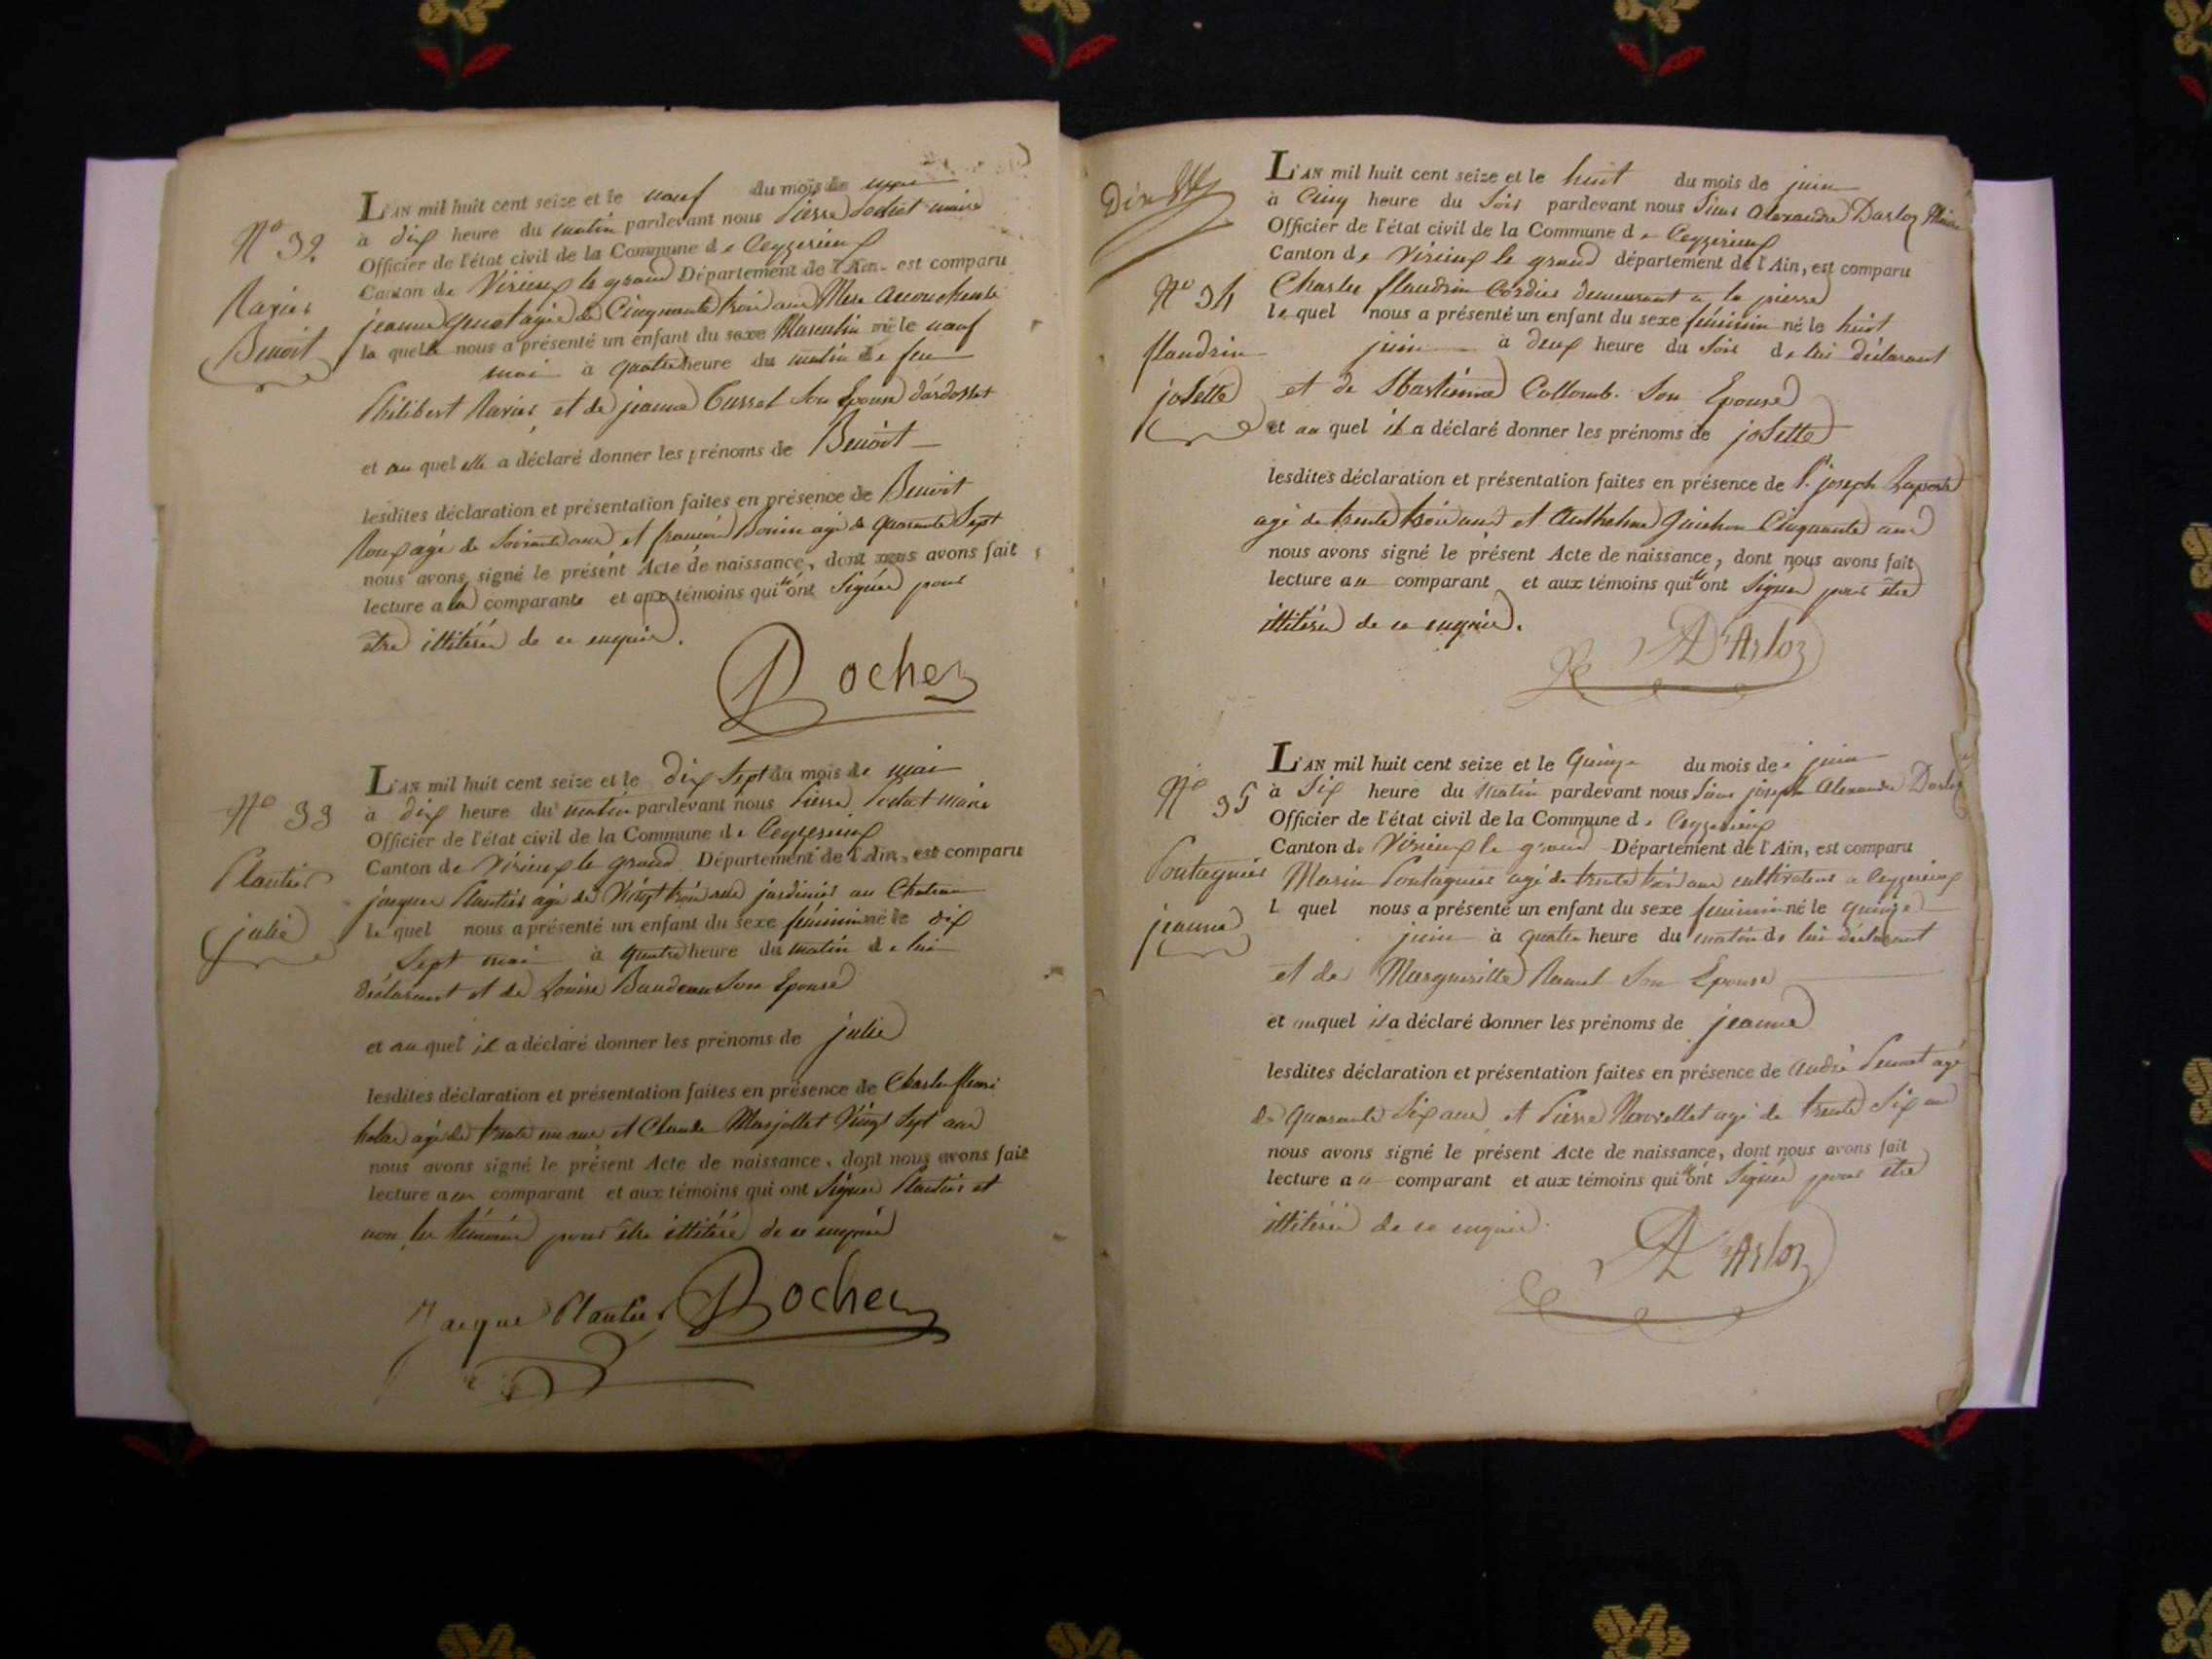 L'AN mil huit cent seize et le neuf du mois de mai
à dix heure du matin pardevant nous Pierre maire
Officier de l'état civil de la Commune de Ceyzerieux
Canton de Virieux le grand Département de l'Ain, est comparu
N° 32
jeanne agée de Cinquante trois ans Mere accoucheuse
Benoit
la quelle nous a présenté un enfant du sexe Masculin né le neuf
mai à quatre heure du matin de feu
Philibert et de jeanne son Epouse d'ardosset
et au quel elle a déclaré donner les prénoms de Benoit
lesdites déclaration et présentation faites en présence de Benoit
Roux agé de soixante ans et francois Bonin agé de quarante Sept
nous avons signé le présent Acte de naissance, dont nous avons fait
lecture a la comparante et aux témoins qui n'ont Signés pour
être illitérés de ce enquis.
Rochez
L'AN mil huit cent seize et le dix Sept du mois de mai
à dix heure du matin pardevant nous Pierre maire
Officier de l'état civil de la Commune de Ceyzerieux
Canton de Virieux le grand Département de l'Ain, est comparu
N° 33
Plantier
jacques Plantier agé de Vingt trois ans jardinier au Chateau
julie
le quel nous a présenté un enfant du sexe féminin né le dix
Sept mai à quatre heure du matin de lui
déclarant et de Louise Baudeau Son Epouse
et au quel il a déclaré donner les prénoms de julie
lesdites déclaration et présentation faites en présence de Charles
agé de trente un ans et Claude Marjollet Vingt Sept ans
nous avons signé le présent Acte de naissance, dont nous avons fait
lecture au comparant et aux témoins qui ont Signé Plantier et
non les témoins pour être illitéré de ce enquis
Jacque Plantier Rochez
L'AN mil huit cent seize et le huit du mois de juin
à Cinq heure du Soir pardevant nous Sieur Alexandre Darloz Maire
Officier de l'état civil de la Commune de Ceyzerieux
Canton de Virieux le grand département de l'Ain, est comparu
N° 34
Charles flandrin Cordier demeurant a la pierre
le quel nous a présenté un enfant du sexe féminin né le huit
flandrin
juin à deux heure du Soir de lui déclarant
josette
et de Sbastienne Collomb Son Epouse
et au quel il a déclaré donner les prénoms de josette
lesdites déclaration et présentation faites en présence de Sr. joseph Laporte
agé de trente trois ans et Anthelme Guichon Cinquante ans
nous avons signé le présent Acte de naissance, dont nous avons fait
lecture au comparant et aux témoins qui n'ont Signer pour être
illitéré de ce enquis.
D'Arloz
L'AN mil huit cent seize et le Quinze du mois de juin
à Six heure du Matin pardevant nous Sieur joseph Alexandre Darloz
Officier de l'état civil de la Commune de Ceyzerieux
Canton de Virieux le grand Département de l'Ain, est comparu
N° 35
Pontagnier
Marin Pontagnier agé de trente trois ans cultivateur a Ceyzerieux
jeanne
l quel nous a présenté un enfant du sexe feminin né le quinze
juin à quatre heure du matin de lui déclarant
et de Margueritte Son Epouse
et auquel il a déclaré donner les prénoms de jeanne
lesdites déclaration et présentation faites en présence de André agé
de Quarante Six ans et Pierre agé de trente Six ans
nous avons signé le présent Acte de naissance, dont nous avons fait
lecture au comparant et aux témoins qui n'ont Signé pour être
illitéré de ce enquis.
D'Arloz